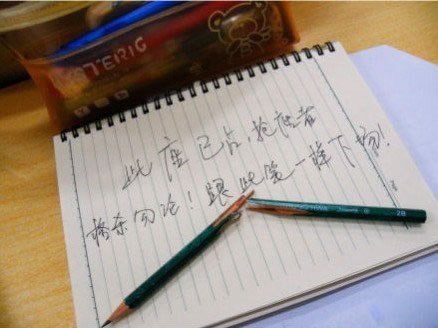 TERIG
此座已占,抢位者
格杀勿论!跟此笔一样下场!
2B